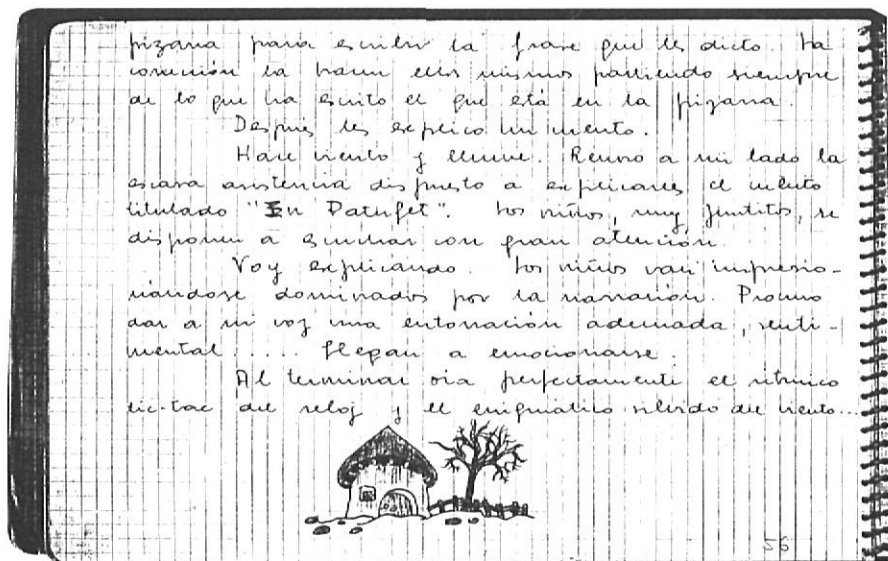 pizarra para escribir la frase que les dicto. La
corrección la hacen ellos mismos partiendo siempre
de lo que ha escrito el que está en la pizarra.
Después les explico un cuento.
Hace viento y llueve. Reuno a mi lado la
escasa asistencia dispuesto a explicarles el cuento
titulado "En Patufet". Los niños, muy juntitos, se
disponen a escuchar con gran atención.
Voy explicando. Los niños van impresio-
nándose dominados por la narración. Procuro
dar a mi voz una entonación adecuada, senti-
mental.... Llegan a emocionarse.
Al terminar oía perfectamente el rítmico
tic-tac del reloj y el enigmático silbido del viento...
56